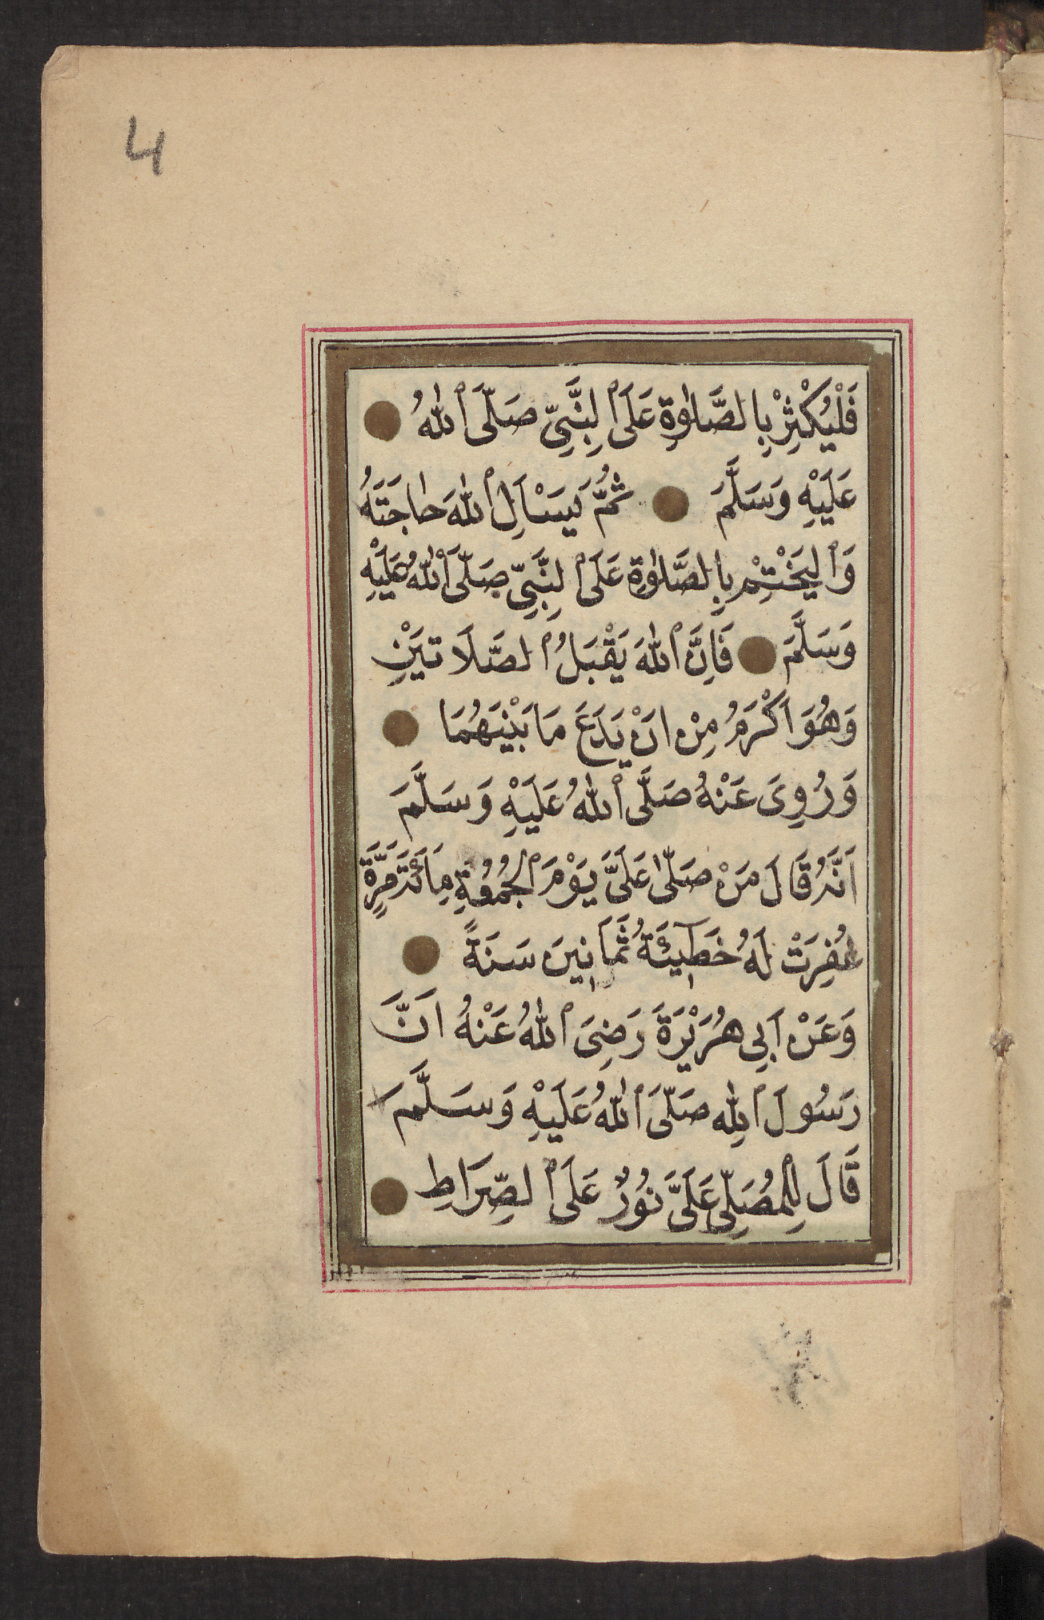 4
فَلْيُكْثِرْ بِالصَّلٰوةِ عَلَى ٱلنَّبِيِّ صَلَّى ٱللّٰهُ
عَلَيْهِ وَسَلَّمَ ثُمَّ يَسْاَلِ ٱللّٰهَ حَاجَتَهُ
وَٱلْيَخْتِمْ بِالصَّلٰوةِ عَلَى ٱلنَّبِيِّ صَلَّى ٱللّٰهُ عَلَيْهِ
وَسَلَّمَ فَاِنَّ ٱللّٰهَ يَقْبَلُ ٱلصَّلَاتَيْنِ
وَهُوَ اَكْرَمُ مِنْ اَنْ يَدَعَ مَا بَيْنَهُمَا
وَرُوِىَ عَنْهُ صَلَّى ٱللّٰهُ عَلَيْهِ وَسَلَّمَ
اَنَّهُ قَالَ مَنْ صَلّٰى عَلَىَّ يَوْمَ ٱلْجُمُعَةِ مِائَةَ مَرَّةٍ
غُفِرَتْ لَهُ خَطِٓيئَةُ ثَمَانِينَ سَنَةً
وَعَنْ اَبِى هُرَيْرَةَ رَضِىَ ٱللّٰهُ عَنْهُ اَنَّ
رَسُولَ ٱللّٰهِ صَلَّى ٱللّٰهُ عَلَيْهِ وَسَلَّمَ
قَالَ لِلْمُصَلِّى عَلَىَّ نُورٌ عَلَى ٱلصِّرَاطِ